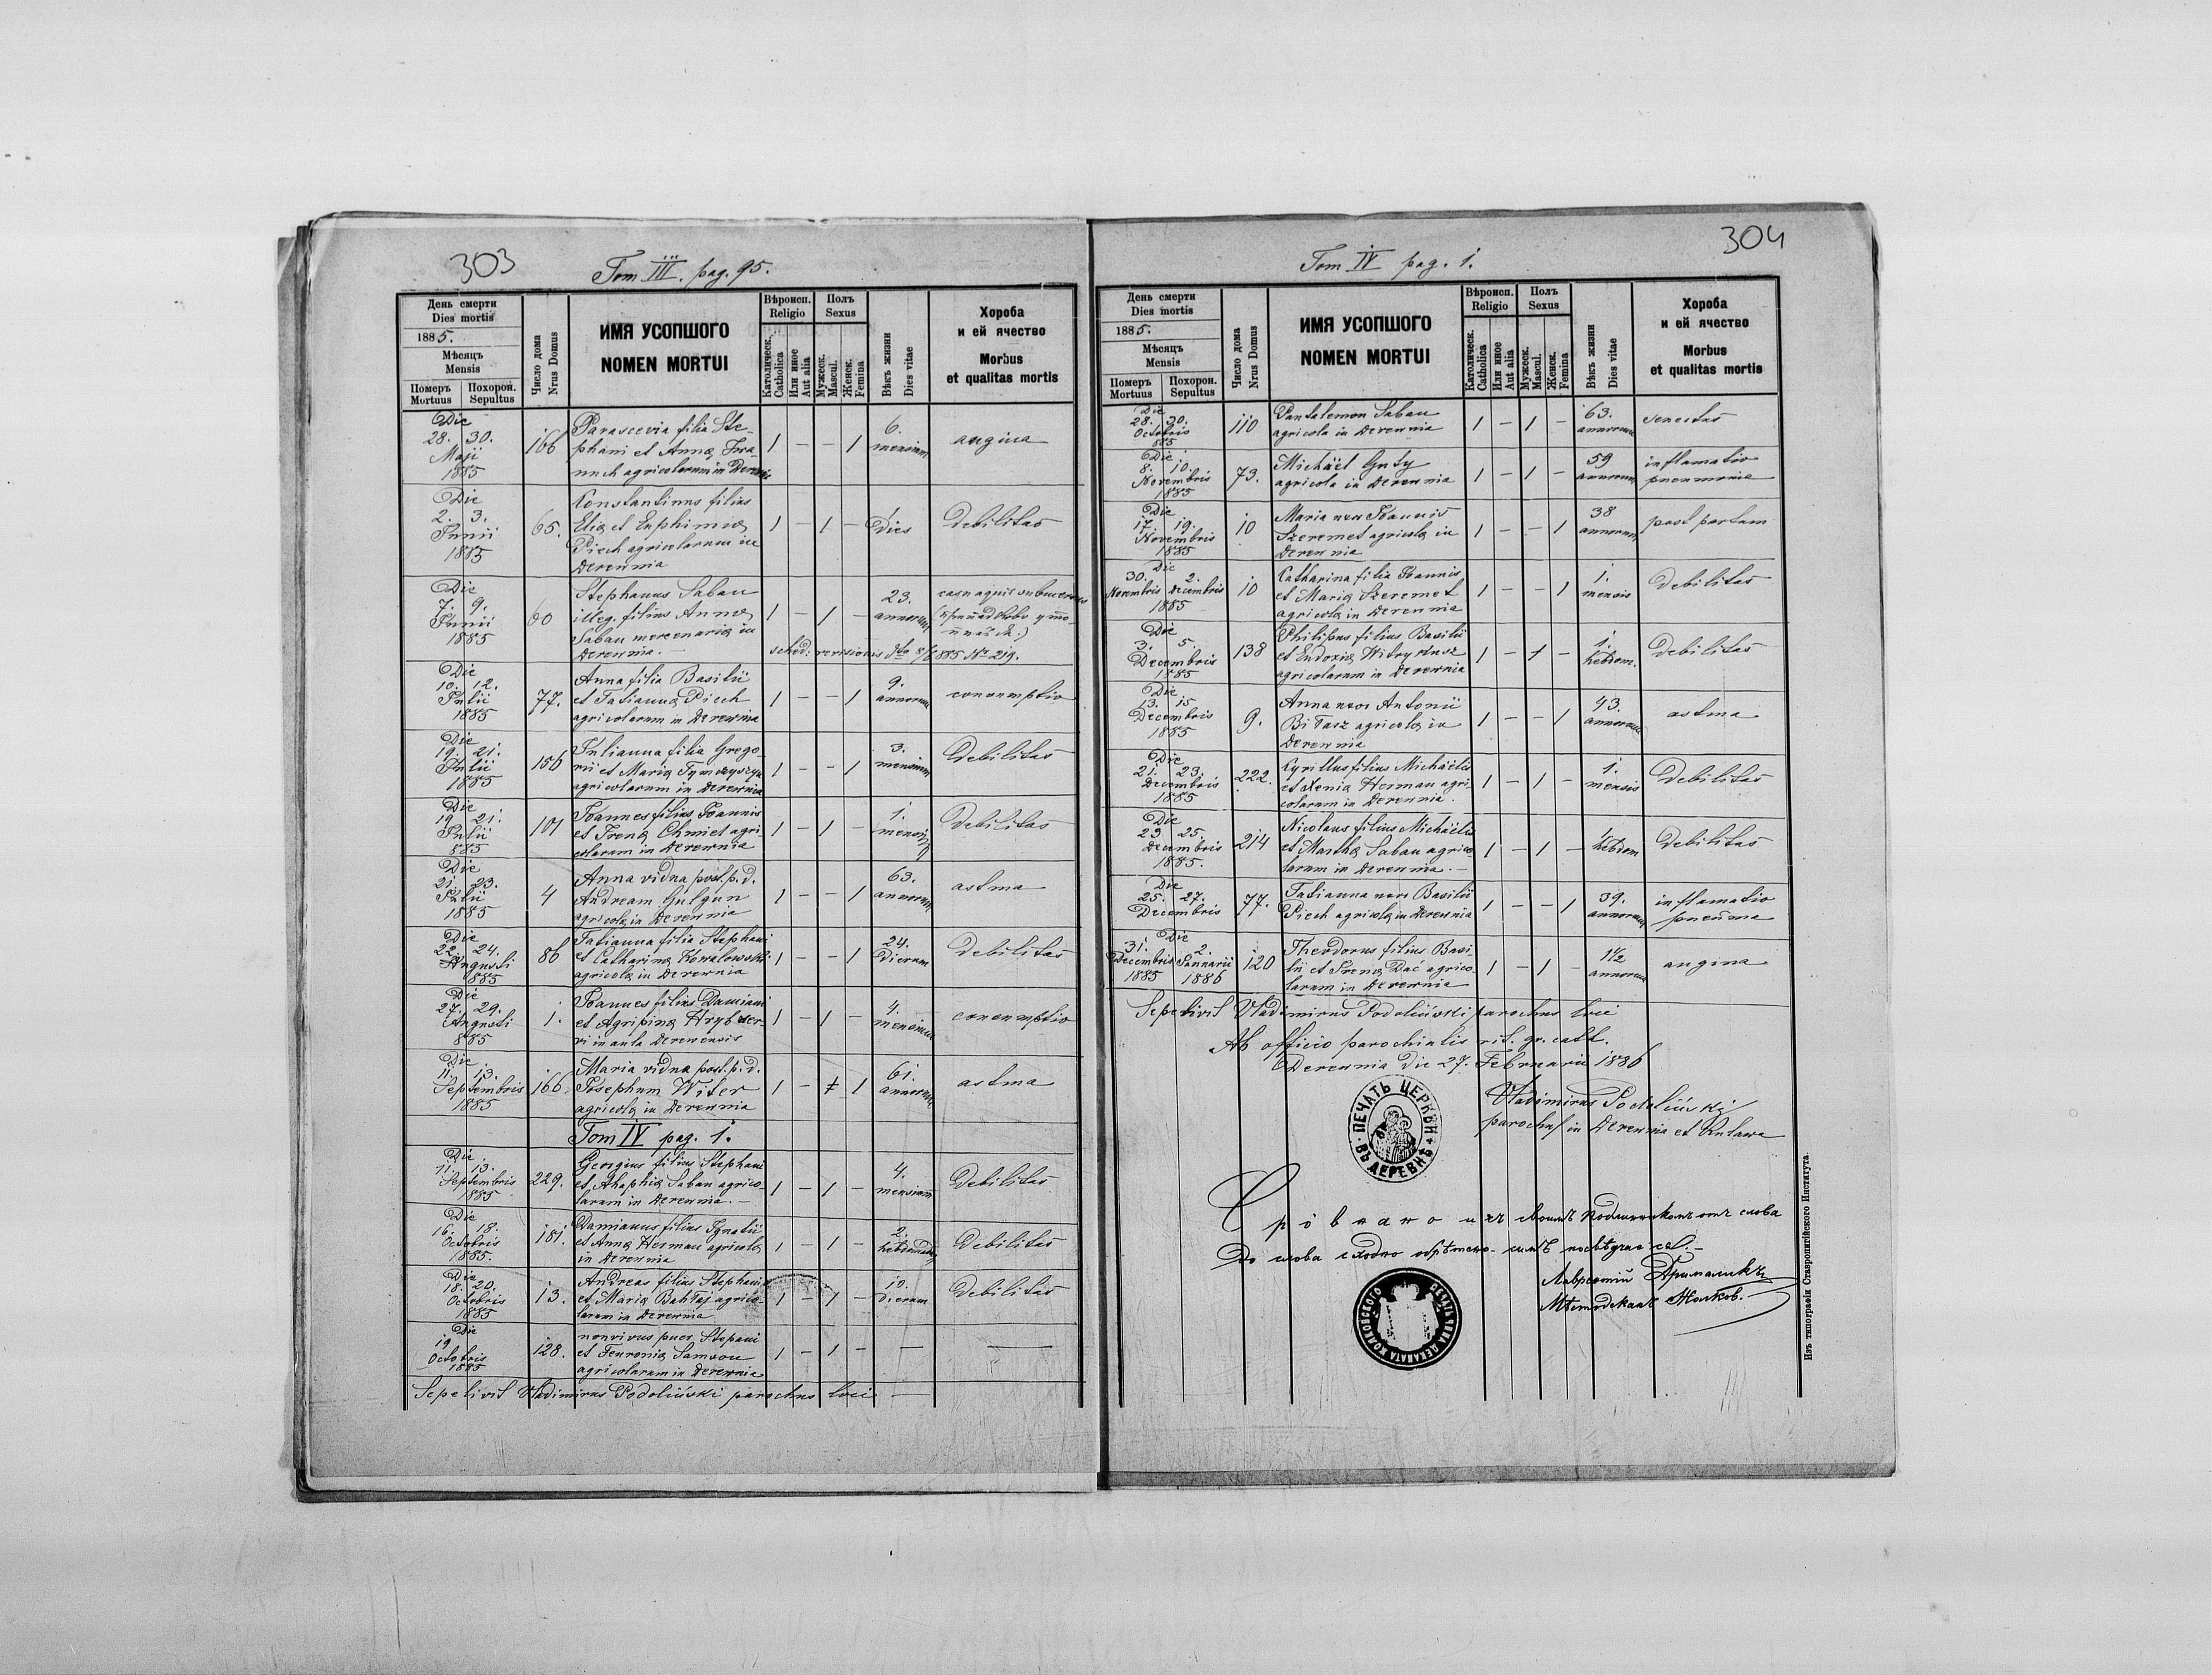 303
Tom III. pag. 95.
День смерти
Dies mortis
1885.
Мѣсяцъ
Mensis
Померъ
Mortuus
Похорон.
Sepultus
Число дома
Nrus Domus
ИМЯ УСОПШОГО
NOMEN MORTUI
Вѣроисп.
Religio
Католическ.
Catholica
Или иное
Aut alia
Полъ
Sexus
Мужеск.
Mascul.
Женск.
Femina
Вѣкъ жизни
Dies vitae
Хороба
и ей ячество
Morbus
et qualitas mortis
Die
28. 30.
Maji
1885
166
Parascevia filia Ste-
phani et Anna
agricolarum in
1 – – 1
6.
mensium
angina
Die
2. 3.
Junii
1885
65.
Constantinus filius
Eliæ et Euphimiæ
Piech agricolarum in
Derewnia
1 – 1 –
1
Dies
Debilitas
Die
7. 9.
Junii
1885
60
Stephanus Saban
illeg. filius Annæ
Saban mercenariæ in
Derewnia. –
1 – 1 –
23.
annorum
casu aquis submersus
sched: revisionis dto 8/6 885 No 219.
Die
10. 12.
Julii
1885
77.
Anna filia Basilii
et Tatianna Piech
agricolarum in Derewnia
1 – – 1
9.
annorum
consumptio
Die
19. 21.
Julii
1885
156
Julianna filia Grego-
rii et Mariæ
agricolarum in Derewnia
1 – – 1
3.
mensium
Debilitas
Die
19 21.
Julii
885
101
Joannes filius Joannis
et Irenæ Chmiel agri-
colarum in Derewnia
1 – 1 –
1.
mensis
Debilitas
Die
21. 23.
Julii
1885
4
Anna vidua post p. d.
Andream Gulgun
agricola in Derewnia
1 – – 1
63.
annorum
astma
Die
22. 24.
Augusti
885
86
Tatianna filia Stephani
et Catharinæ Kowalowski
agricola in Derewnia
1 – – 1
24.
Dierum
Debilitas
Die
27. 29.
Augusti
885
1.
Joannes filius Damiani
et Agripinæ
in aula Derewensis
1 – 1 –
4.
mensium
consumptio
Die
11. 13.
Septembris
1885
166.
Maria vidua post. p. d.
Josephum Witer
agricola in Derewnia
1 – 1
61.
annorum
astma
Tom IV pag. 1.
Die
11. 13.
Septembris
1885
229.
Georgius filius Stephani
et Ahaphiæ Saban agrico-
larum in Derewnia. –
1 – 1 –
4.
mensium
Debilitas
Die
16. 18.
Octobris
1885.
181.
Damianus filius Ignatii
et Anna Herman agricola
in Derewnia
1 – 1 –
2.
Debilitas
Die
18. 20.
Octobris
1885
13.
Andreas filius Stephani
et Mariæ agrico-
larum in Derewnia
1 – 1 –
10.
Dierum
Debilitas
Die
19
Octobris
1885
128.
nonvivus puer Stepani
et Samson
agricolarum in Derewnia
1 – 1 – — —
Sepelivit Vladimirus Podoliński parochus loci —
304
Tom IV pag. 1.
День смерти
Dies mortis
1885.
Мѣсяцъ
Mensis
Померъ
Mortuus
Похорон.
Sepultus
Число дома
Nrus Domus
ИМЯ УСОПШОГО
NOMEN MORTUI
Вѣроисп.
Religio
Католическ.
Catholica
Или иное
Aut alia
Полъ
Sexus
Мужеск.
Mascul.
Женск.
Femina
Вѣкъ жизни
Dies vitae
Хороба
и ей ячество
Morbus
et qualitas mortis
Die
28. 30.
Octobris
885
110
Pantalemon Saban
agricola in Derewnia
1 – 1 –
63.
annorum
senectus
Die
8. 10.
Novembris
1885
73.
Michäel Guty
agricola in Derewnia
1 – 1 –
59
annorum
inflamatio
pneumonia
Die
17. 19.
Novembris
1885
10
Maria uxor Joannis
Szeremet agricola in
Derewnia
1 – – 1
38
annorum
post partum
Die
30. 2.
Novembris Decembris
1885
10
Catharina filia Joannis
et Mariæ Szeremet
agricola in Derewnia
1 – – 1
1.
mensis
Debilitas
Die
3. 5.
Decembris
1885
138
Philipus filius Basilii
et Eudoxiæ
agricolarum in Derewnia
1 – 1 –
1.
hebdom.
Debilitas
Die
13. 15
Decembris
1885
9.
Anna uxor Antonii
agricola in
Derewnia
1 – – 1
43.
annorum
astma
Die
21. 23.
Decembris
1885
222.
Cyrillus filius Michäelis
et Xenia Herman agri-
colarum in Derewnia.
1 – 1 –
1.
mensis
Debilitas
Die
23 25.
Decembris
1885.
214
Nicolaus filius Michäelis
et Martha Saban agrico-
larum in Derewnia. –
1 – 1 –
1
hebdom
Debilitas
Die
25. 27.
Decembris
77.
Tatianna uxor Basilii
Piech agricola in Derewnia
1 – – 1
39.
annorum
inflamatio
pneuma
Die
31. 2.
Decembris Januarii
1885 1886
120
Theodorus filius Basi-
lii et Irena Dać agrico-
larum in Derewnia
1 – 1 –
1½
annorum
angina
Sepelivit Vladimirus Podoliński parochus loci
Ab officio parochialis rit. gr. cath.
Derewnia die 27. Februarii 1886
Vladimirus Podoliński
parochus in Derewnia et Kulawa
ПЕЧАТЬ ЦЕРКВИ
ВЪ ДЕРЕВНѢ
до слова сходно обрѣтено
Изъ типографіи Ставропигійского Института.